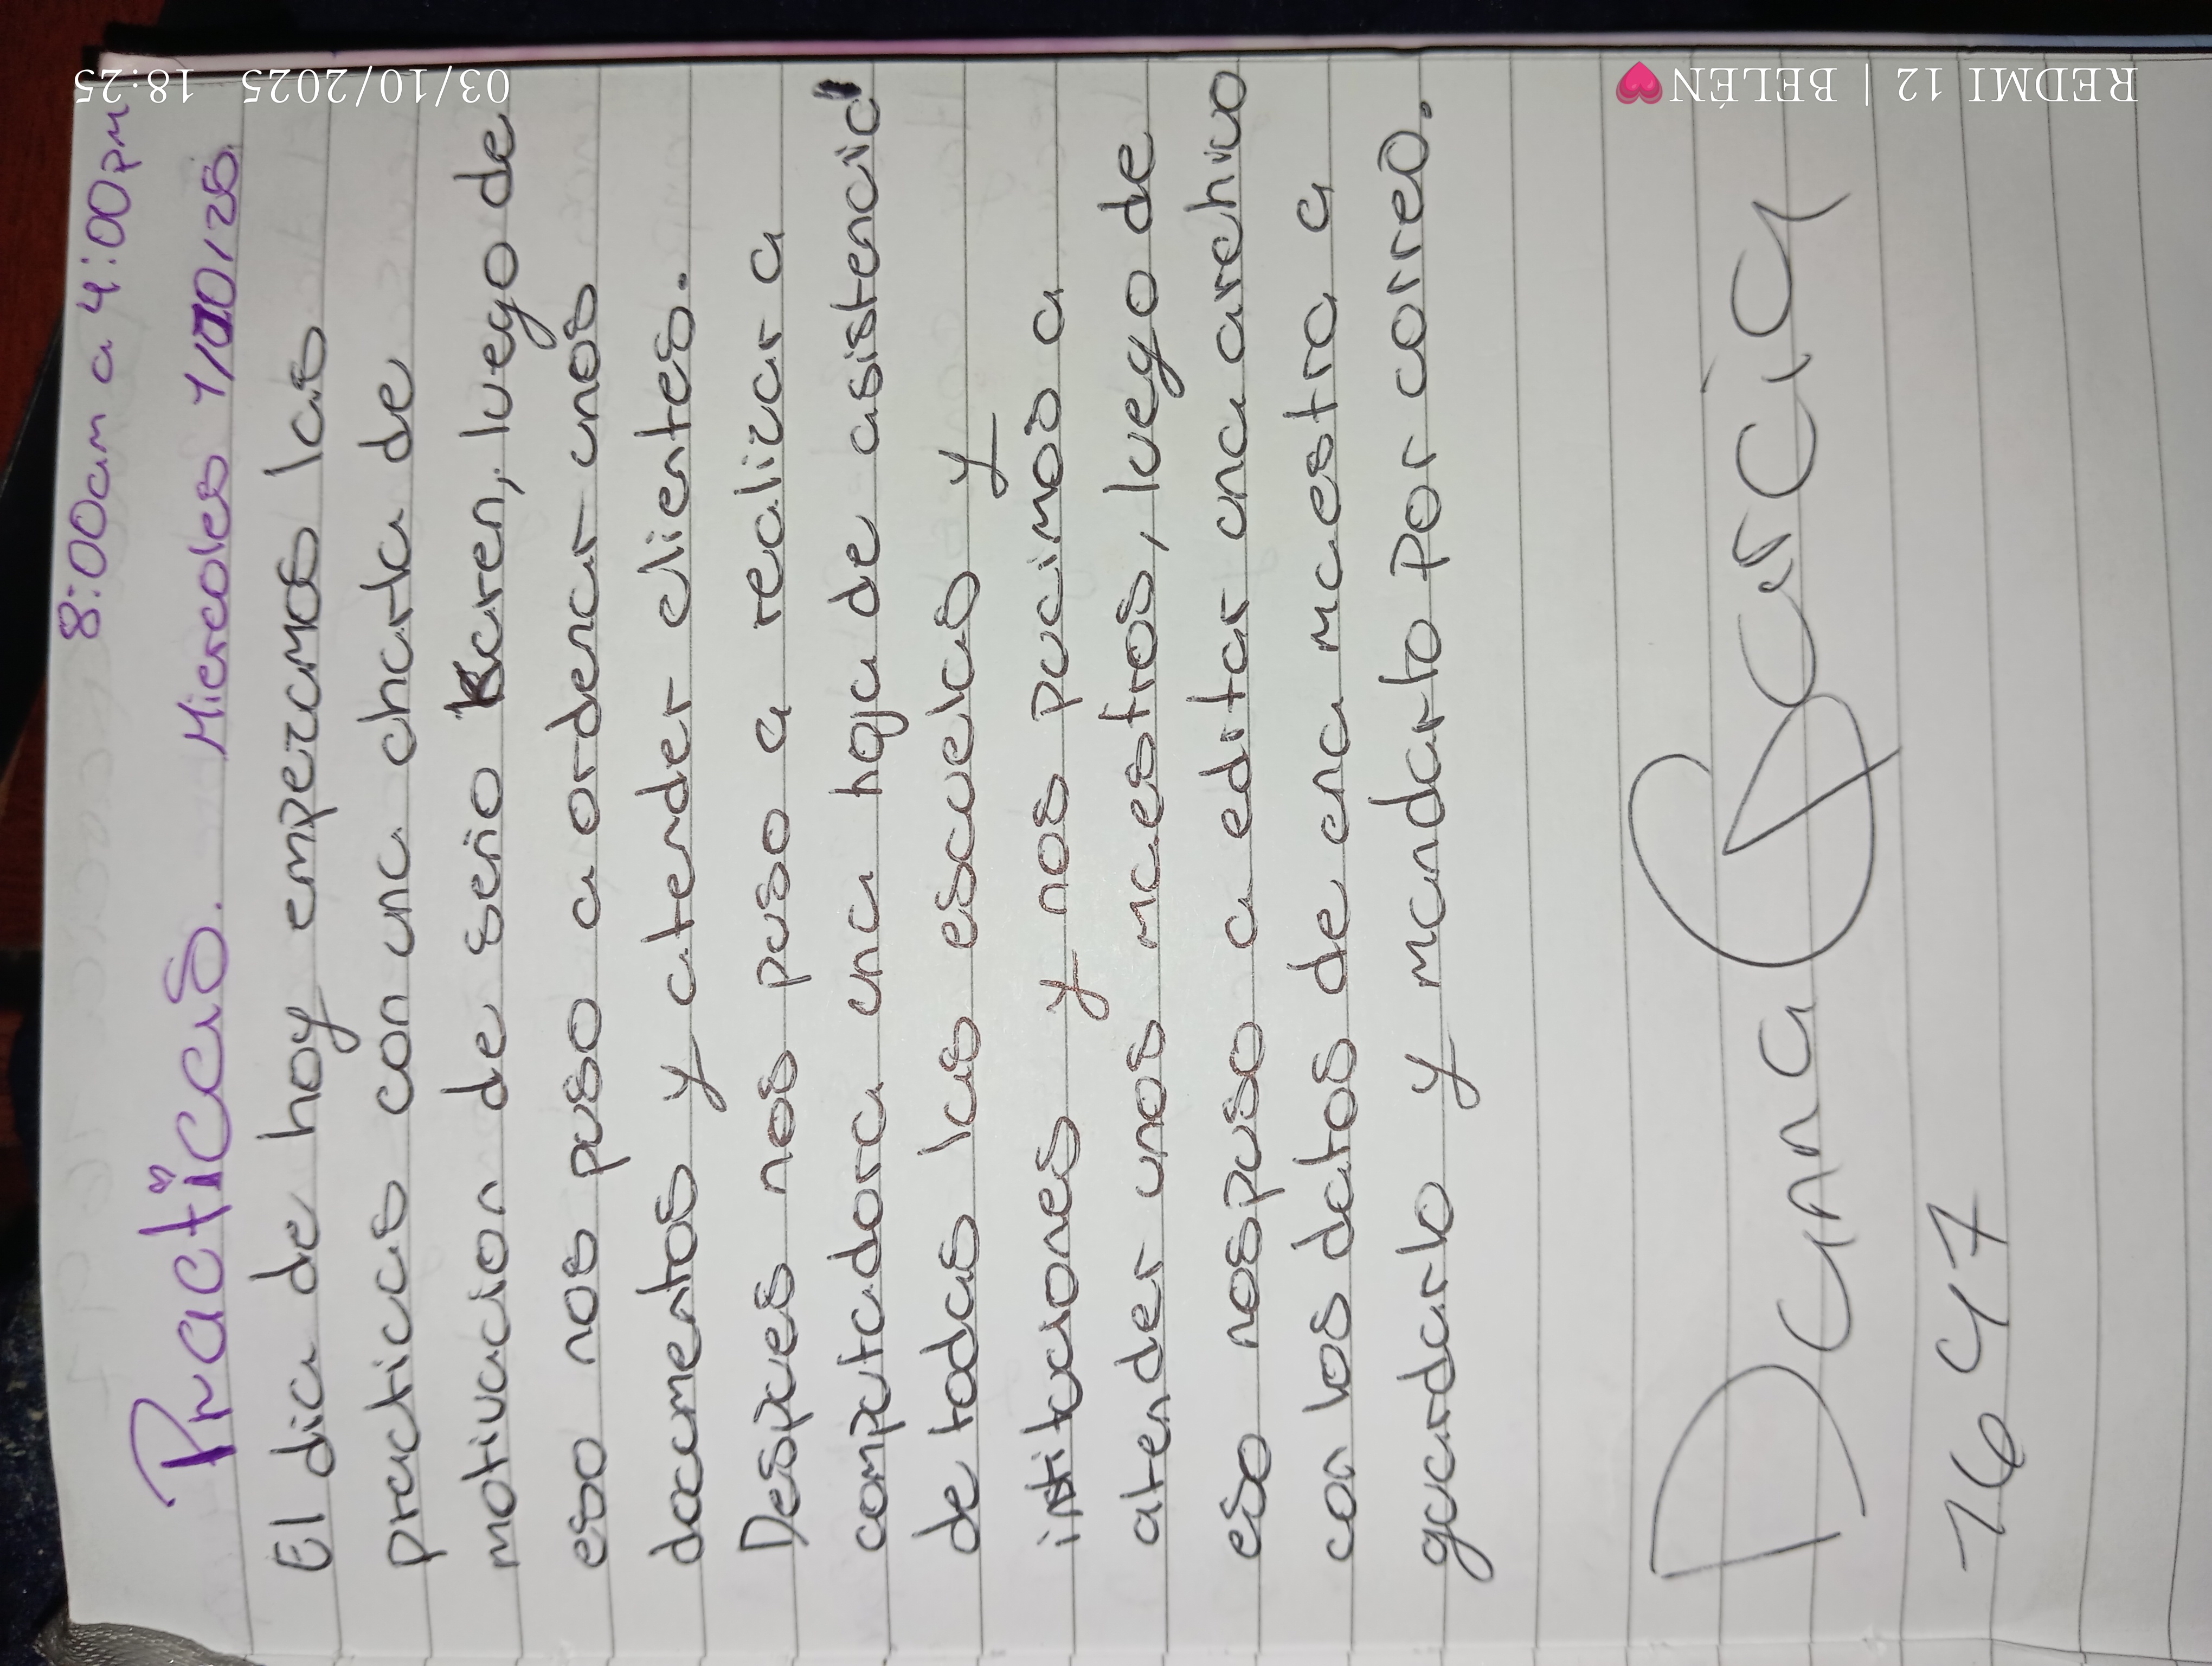 8:00am a 4:00pm
Practicas. Miercoles 1/10/25
El dia de hoy empezamos las
practicas con una charla de
motivacion de seño Karen, luego de
eso nos puso a ordenar unos
documentos y atender clientes.
Despues nos puso a realizar a
computadora una hoja de asistencia
de todas las escuelas y
intituciones y nos pucimos a
atender unos maestros, luego de
eso nos puso a editar una archivo
con los datos de una maestra a
guardarlo y mandarlo por correo.
Dana García
1647
03/10/2025 18:25
REDMI 12 | BELÉN💗